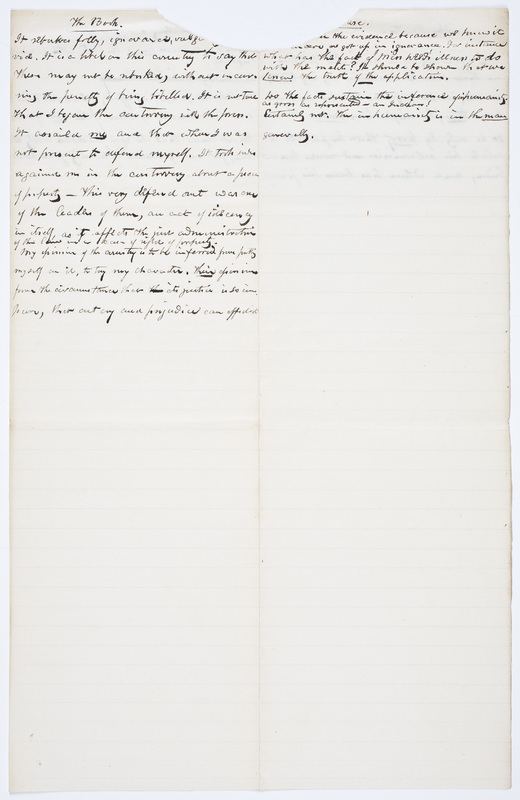 The Book.
It rebukes folly, ignorance,
vice. It is a libel on this country to say that
these may not be rebuked, without incur-
ring the penalty of being libelled. It is not true
that I began the controversy with the press.
It assailed me and that when I was
not present to defend myself. It took sides
against me in the controversy about a piece
of property — This very defend out was one
of the leaders of them, an act of indecency
in itself, as it affects the just administration
of the laws in a of right of property.
My opinion of the country is to be inferred from putting
myself on it, to try my character. Their opinion
from the circumstance that its justice is so im-
pure, that outcry and prejudice can affect it
case.
the evidence because we know it
as got up in ignorance. For instance
what has the fact of Miss illness to do
with the matter? It should be shown that we
know the truth of the application.
Do the facts sustain the inference of inhumanity
as gross as represented — an Indian!
Certainly not. The inhumanity is in the man
generally.